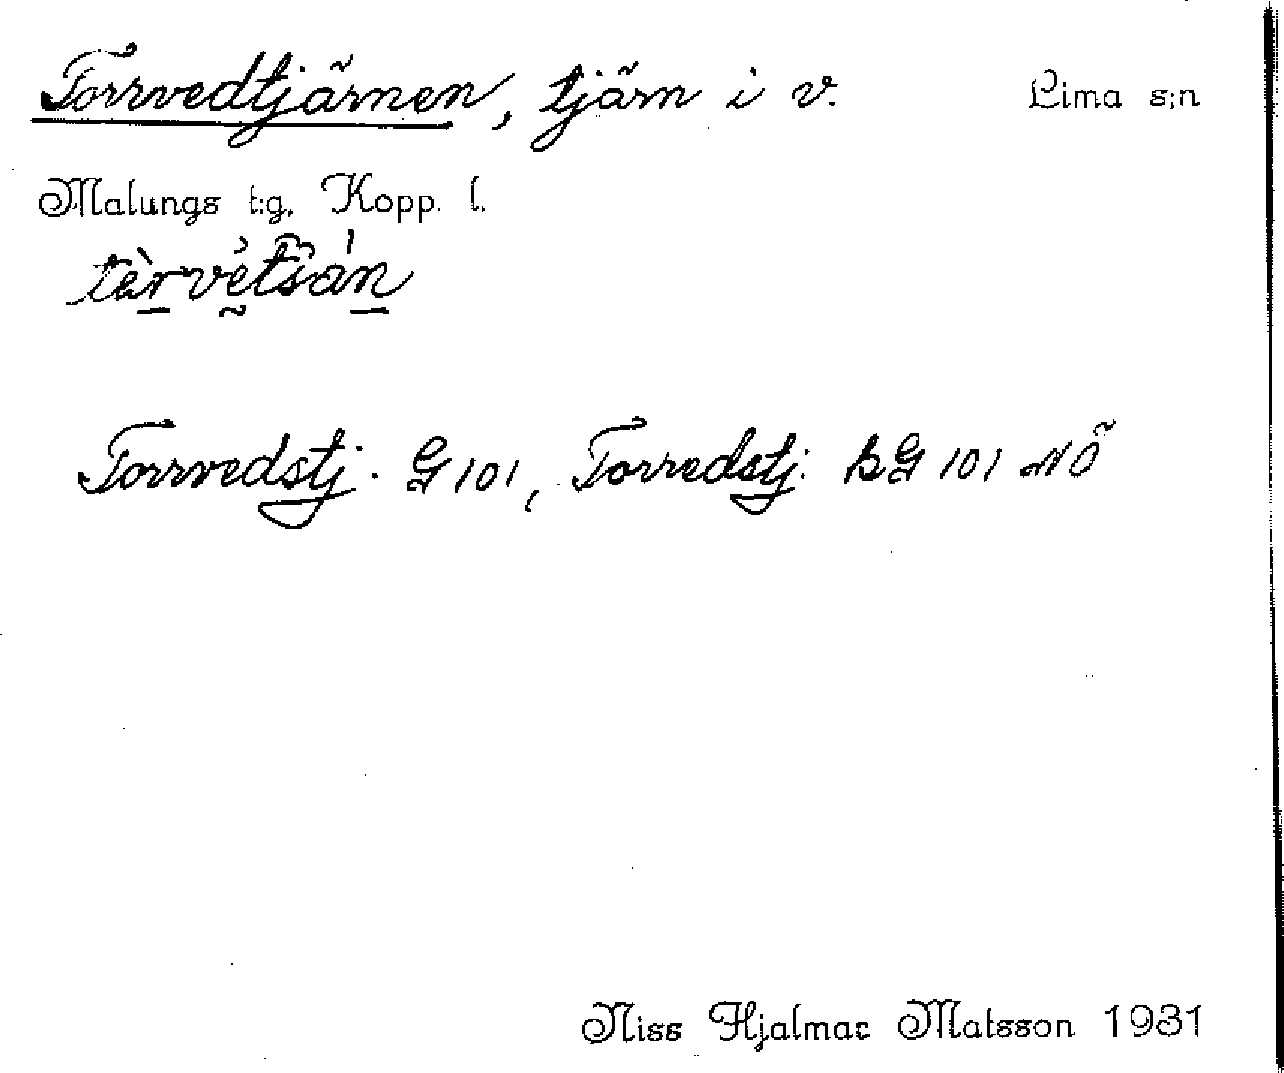 Torrvedtjärnen, tjärn i v. Lima s:n
Malungs t:g. Kopp. l.
Torrvedstj. G 101, Torredstj: BG 101 NÖ
Niss Hjalmar Matsson 1931